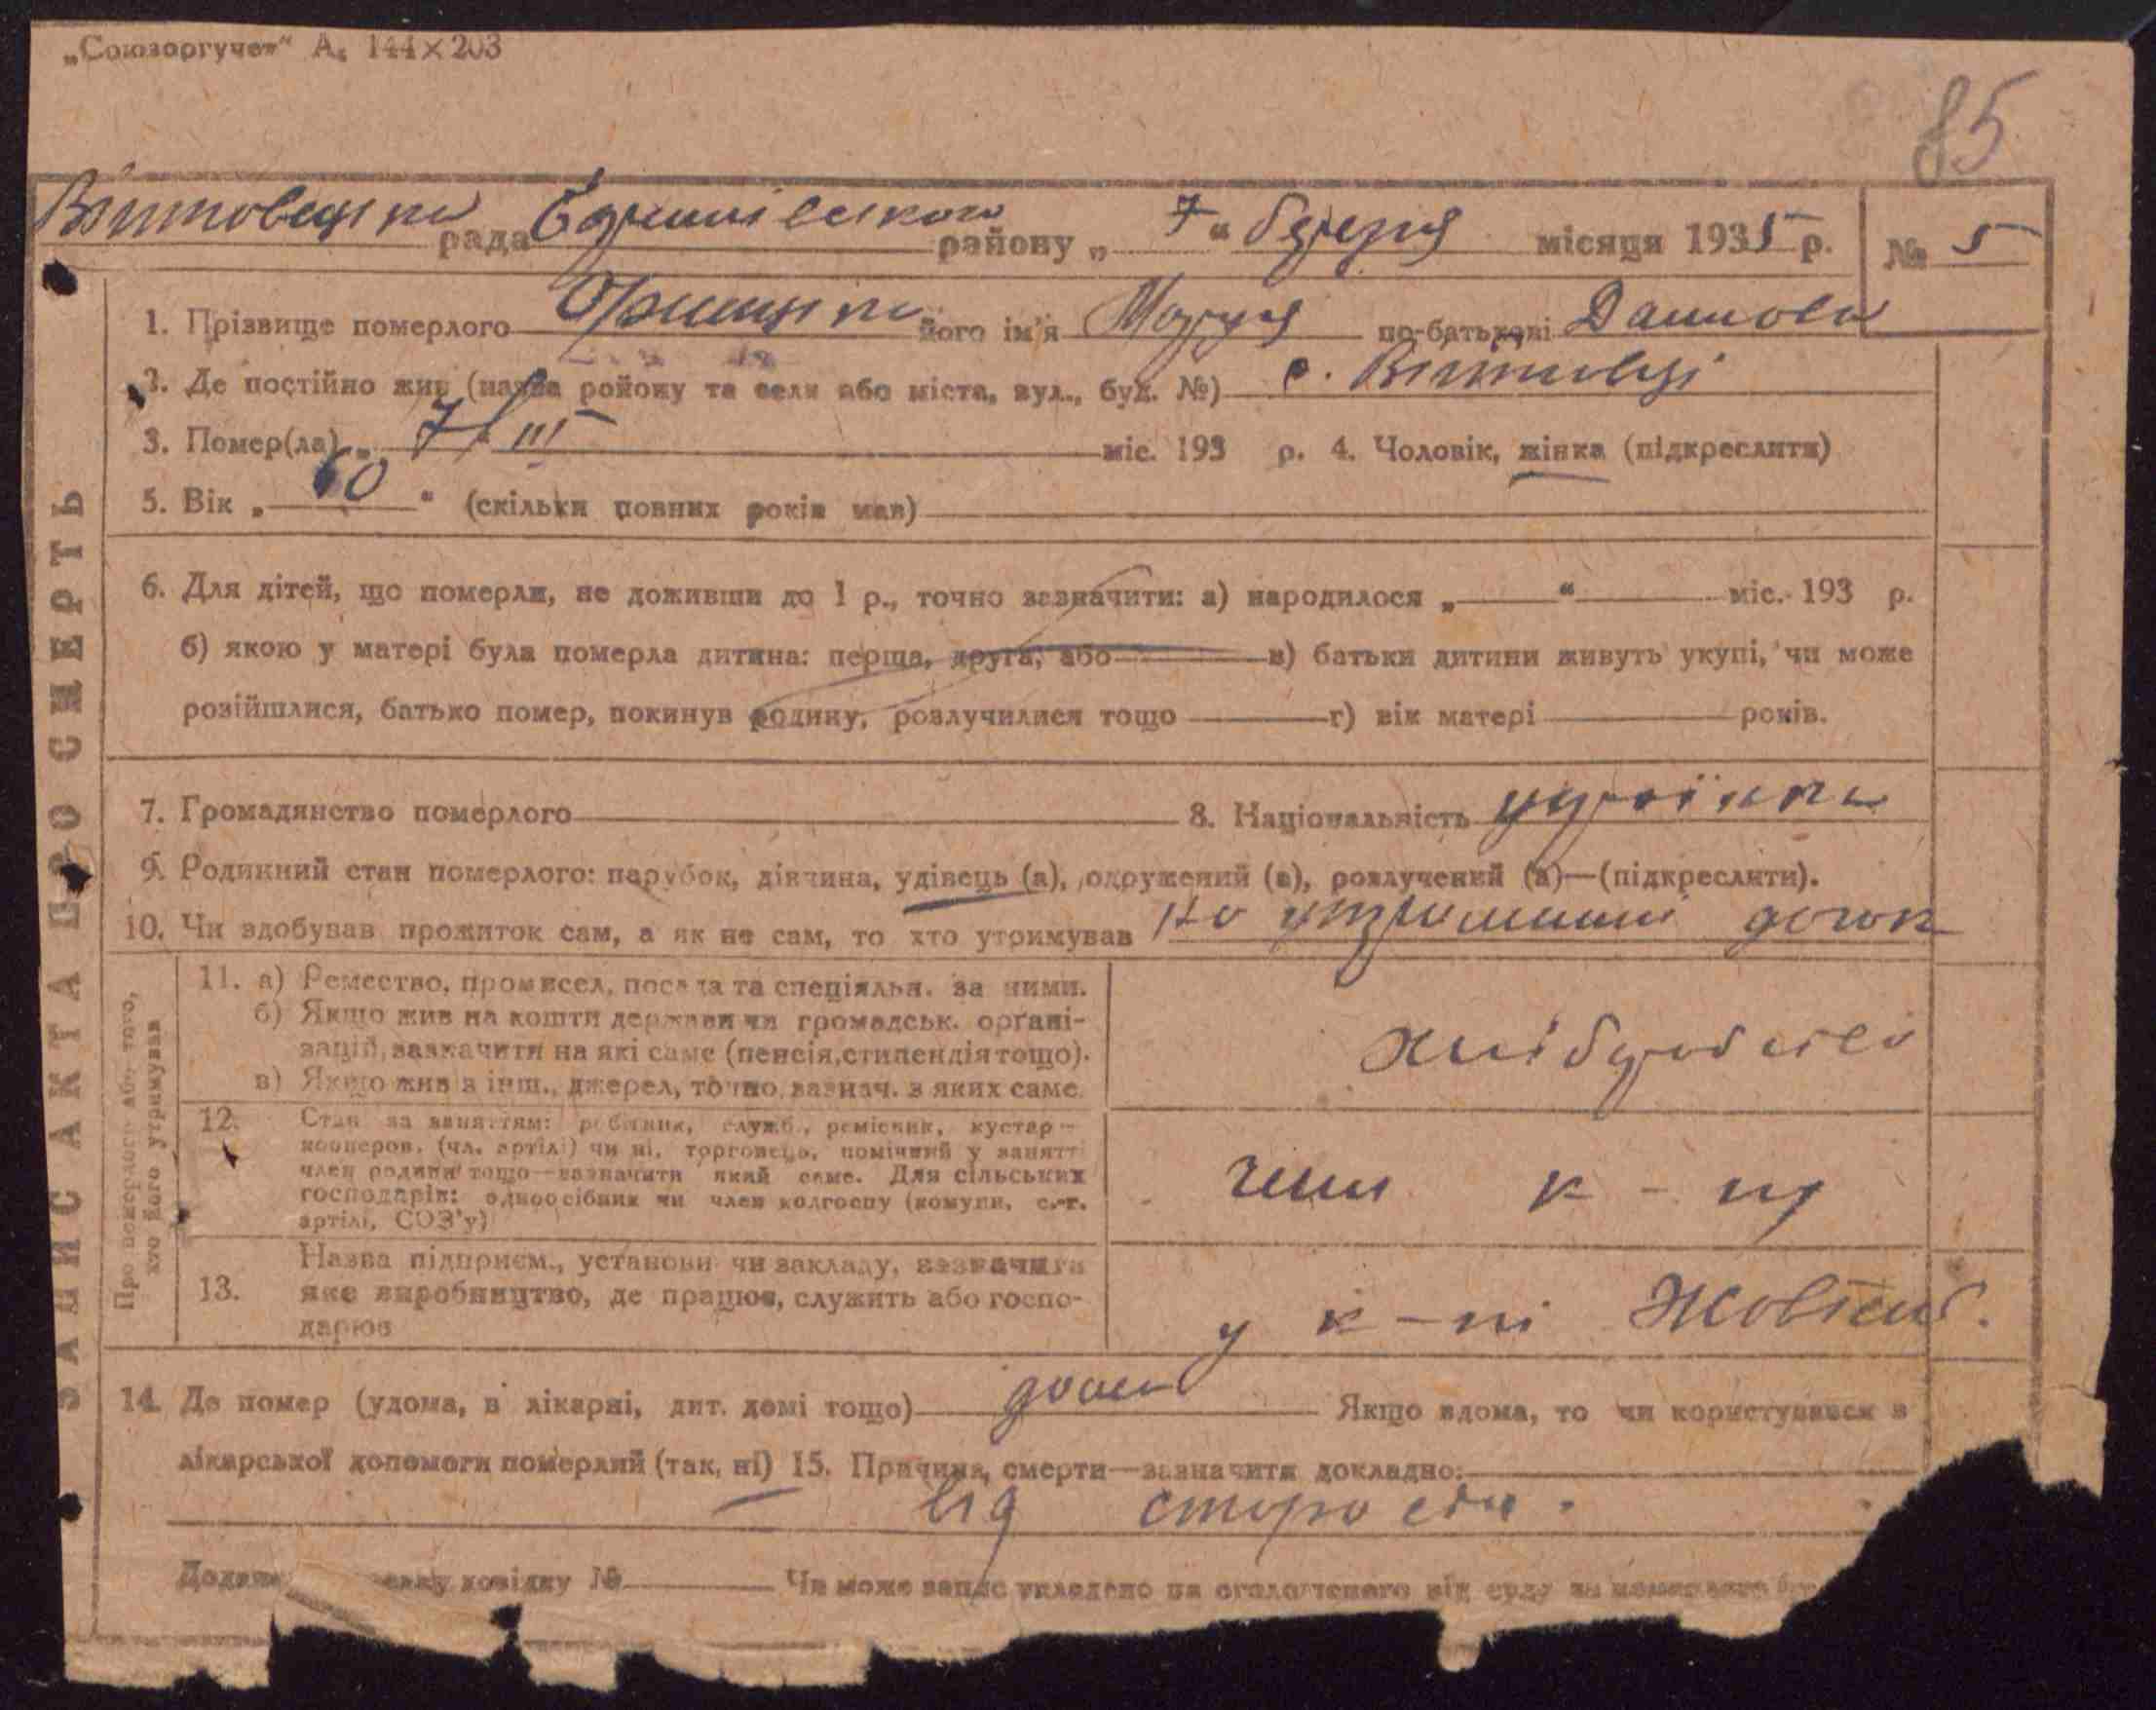 „Союзоргучет“ А₄ 144×203
85
рада Баришівського району „ 7 “ березня місяця 1935 р. № 5
1. Прізвище померлого його ім'я Маруся по-батькові Данилова
2. Де постійно жив (назва ройону та села або міста, вул., буд. №) с. Войтівці
3. Помер(ла) „ 7/III міс. 193 р. 4. Чоловік, жінка (підкреслити)
5. Вік „ 60 “ (скільки повних років мав)
6. Для дітей, що померли, не доживши до 1 р., точно зазначити: а) народилося „ “ міс. 193 р.
б) якою у матері була померла дитина: перша, друга, або в) батьки дитини живуть укупі, чи може
розійшлися, батько помер, покинув родину, розлучилися тощо г) вік матері років.
7. Громадянство померлого 8. Національність українка
9. Родинний стан померлого: парубок, дівчина, удівець (а), одружений (а), розлучений (а)—(підкреслити).
10. Чи здобував прожиток сам, а як не сам, то хто утримував на утриманні дочки
ЗАПИС АКТА ПРО СМЕРТЬ
Про померлого або того, хто його утримував
11. а) Ремество, промисел, посада та спеціяльн. за ними.
б) Якщо жив на кошти держави чи громадськ. органі-
зацій, зазначити на які саме (пенсія, стипендія тощо).
в) Якщо жив з інш., джерел, точно, зазнач. з яких саме.
хліборобство
12. Стан за заняттям: робітник, служб., ремісник, кустар—
кооперов. (чл. артілі) чи ні, торговець, помічний у занятті
член родини тощо—зазначити який саме. Для сільських
господарів: одноосібник чи член колгоспу (комуни, с.-г.
артілі, СОЗ'у)
член к-пу
13. Назва підприєм., установи чи закладу, зазначити
яке виробництво, де працює, служить або госпо-
дарює
у к-пі Жовтень.
14. Де помер (удома, в лікарні, дит. домі тощо) дома Якщо вдома, то чи користувався з
лікарської допомоги померлий (так, ні) 15. Причина смерти—зазначити докладно:
від старости.
довідку № Чи може запис укладено на оголошеного від суду за